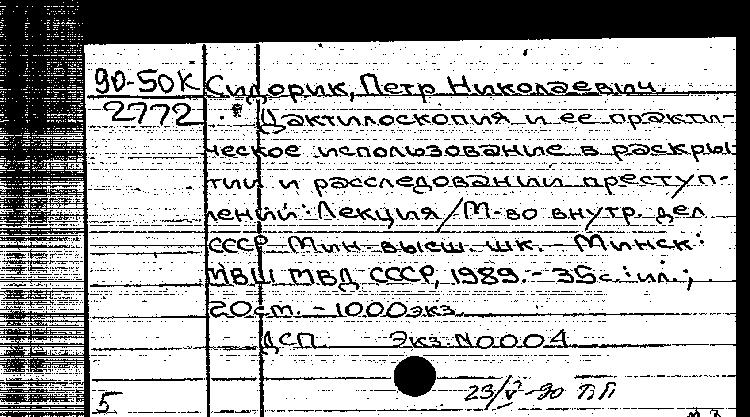 90-50К Сидорик, Петр Николаевич.
2772 Дактилоскопия и ее практи-
ческое использование в раскры-
тии и расследовании преступ-
лений: Лекция / М-во внутр. дел
СССР. Мин. высш. шк. - Минск:
МВШ МВД СССР, 1989. - 35 с.: ил.;
20 см. - 1000 экз.
ДСП Экз. N0004
23/V-90 ПП
5